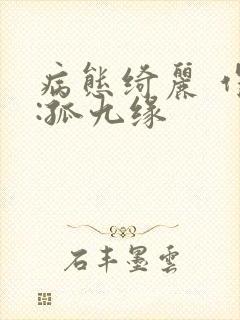 病態綺麗
:孤九缘
石丰墨雲